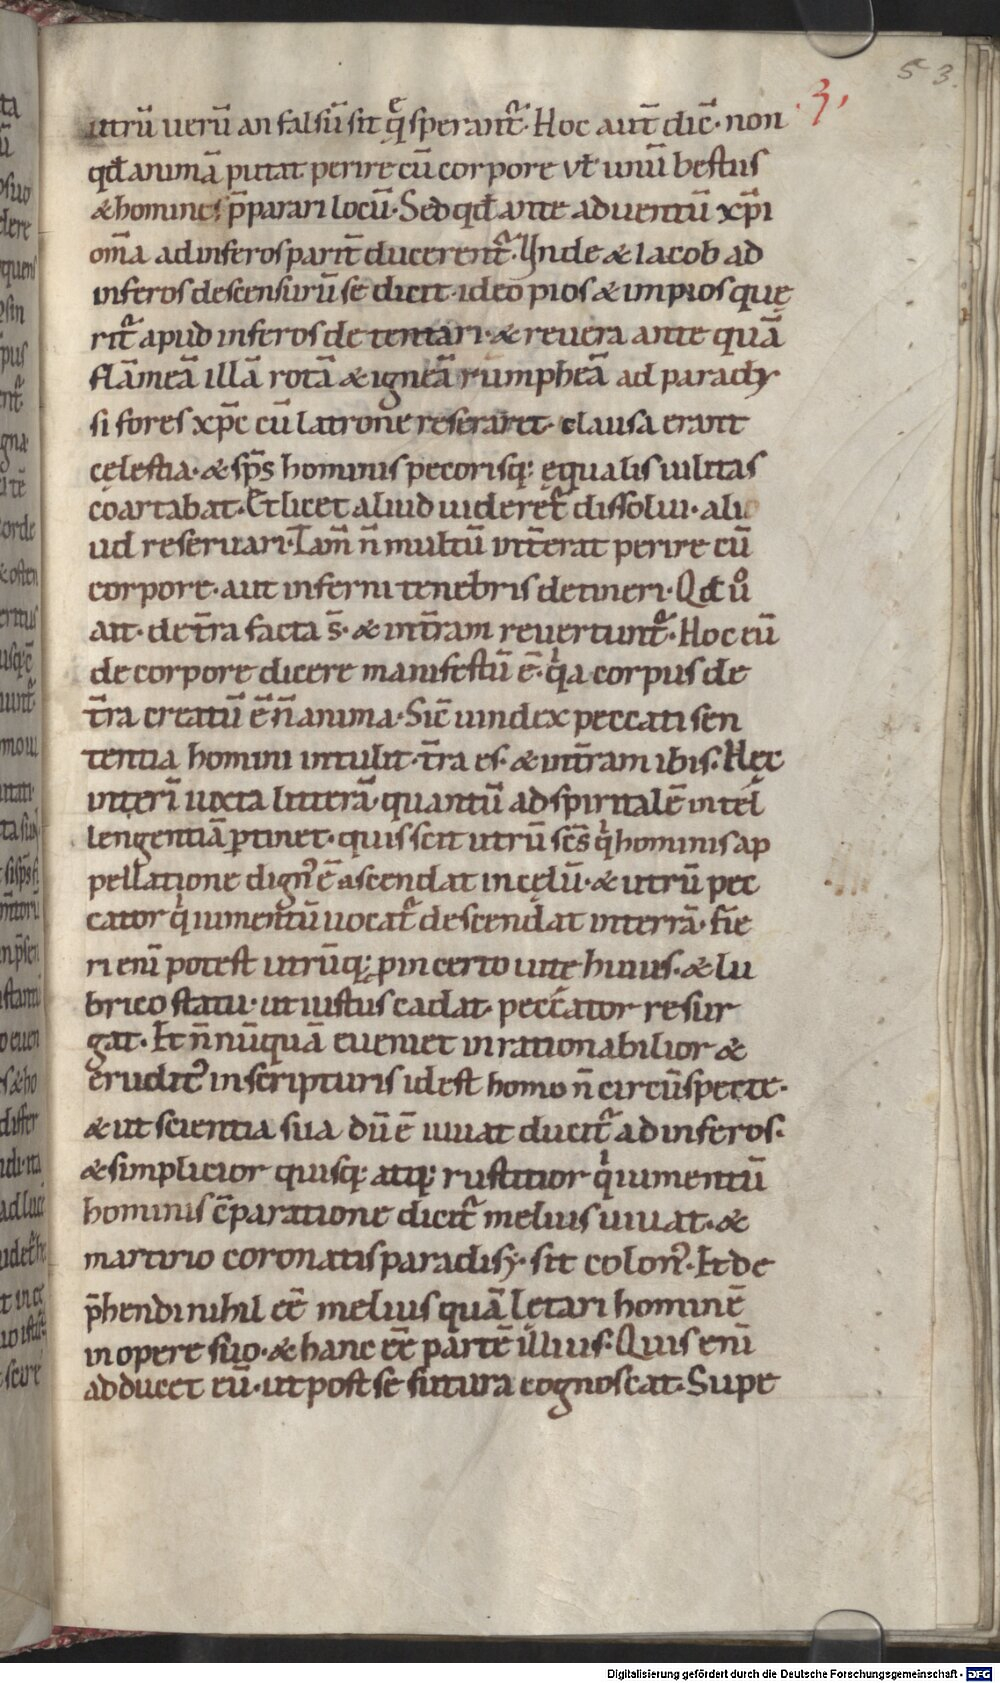 53.
.3,
utrū uerū an falsū sit q̄ sperant᷑. Hoc aut̄ dic̄. non
qđ animā putat perire cū corpore vł unū bestiis
& homines p̄parari locū. Sed qđ ante aduentū xp̄i
om̄a ad inferos parit̄ ducerent᷑. Vnde & Iacob ad
inferos descensurū se dicit. ideo pios & impios quę
rit᷑ apud inferos detentari. & reuera ante quā
flāmeā illā rotā & igneā rumpheā ad parady
si fores xp̄c cū latrone reseraret. clausa erant
cęlestia. & sp̄s hominis pecorisq; ęqualis uilitas
coartabat. Et licet aliud uideret᷑ dissolui. ali
ud reseruari. Tam̄ n̄ multū int̄erat perire cū
corpore. aut inferni tenebris detineri. Qđ uͦ
ait. de t̄ra facta s̄. & in t̄ram reuertunt᷑. Hoc eū
de corpore dicere manifestū ē. qͥa corpus de
t̄ra creatū ē n̄ anima. Sic̄ uindex peccati sen
tentia homini intulit. t̄ra es. & in t̄ram ibis. Hęc
interī iuxta litterā. quantū ad spiritalē intel
lengentiā ꝑtinet. quis scit utrū sc̄s qͥ hominis ap
pellatione dign᷒ ē ascendat in cęlū. & utrū pec
cator qͥ iumentū uocat᷑ descendat in terrā. fie
ri enī potest utrūq; ꝓ incerto uitę huius. & lu
brico statu. ut iustus cadat. peccator resur
gat. Et n̄ nūquā eueniet in rationabilior &
erudit᷒ in scripturis id est homo n̄ circūspecte.
& ut scientia sua dū ē uiuat ducit᷑ ad inferos.
& simplicior quisq; atq; rustitior qͥ iumentū
hominis c̄paratione dicit᷑ melius uiuat. &
martirio coronatis paradisy. sit colon᷒. Et de
p̄hendi nihil eē melius quā lętari hominē
in opere suo. & hanc eē partē illius. Quis enī
adducet eū. ut post se futura cognoscat. Supe
Digitalisierung gefördert durch die Deutsche Forschungsgemeinschaft - DFG